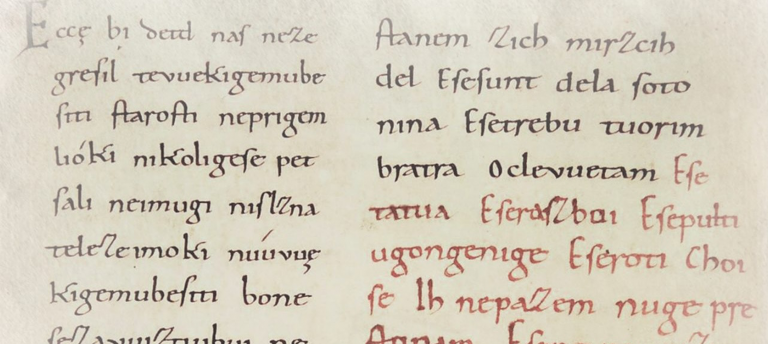 Eccę bi detd naſ neze
greſil tevuekigemube
ſiti ſtaroſti neprigem
lióki nikoligeſe pet
ſali neimugi niſlzna
teleze imoki nuúvuę
kigemubeſiti bone
ſtanem zich mirzcih
del Eſeſunt dela ſoto
nina Eſetrebu tuorim
bratra Oclevuetam Eſe
tatua Eſeraſzboi Eſepulti
ugongenige Eſeroti Choi
ſe Ih nepazem nuge pre